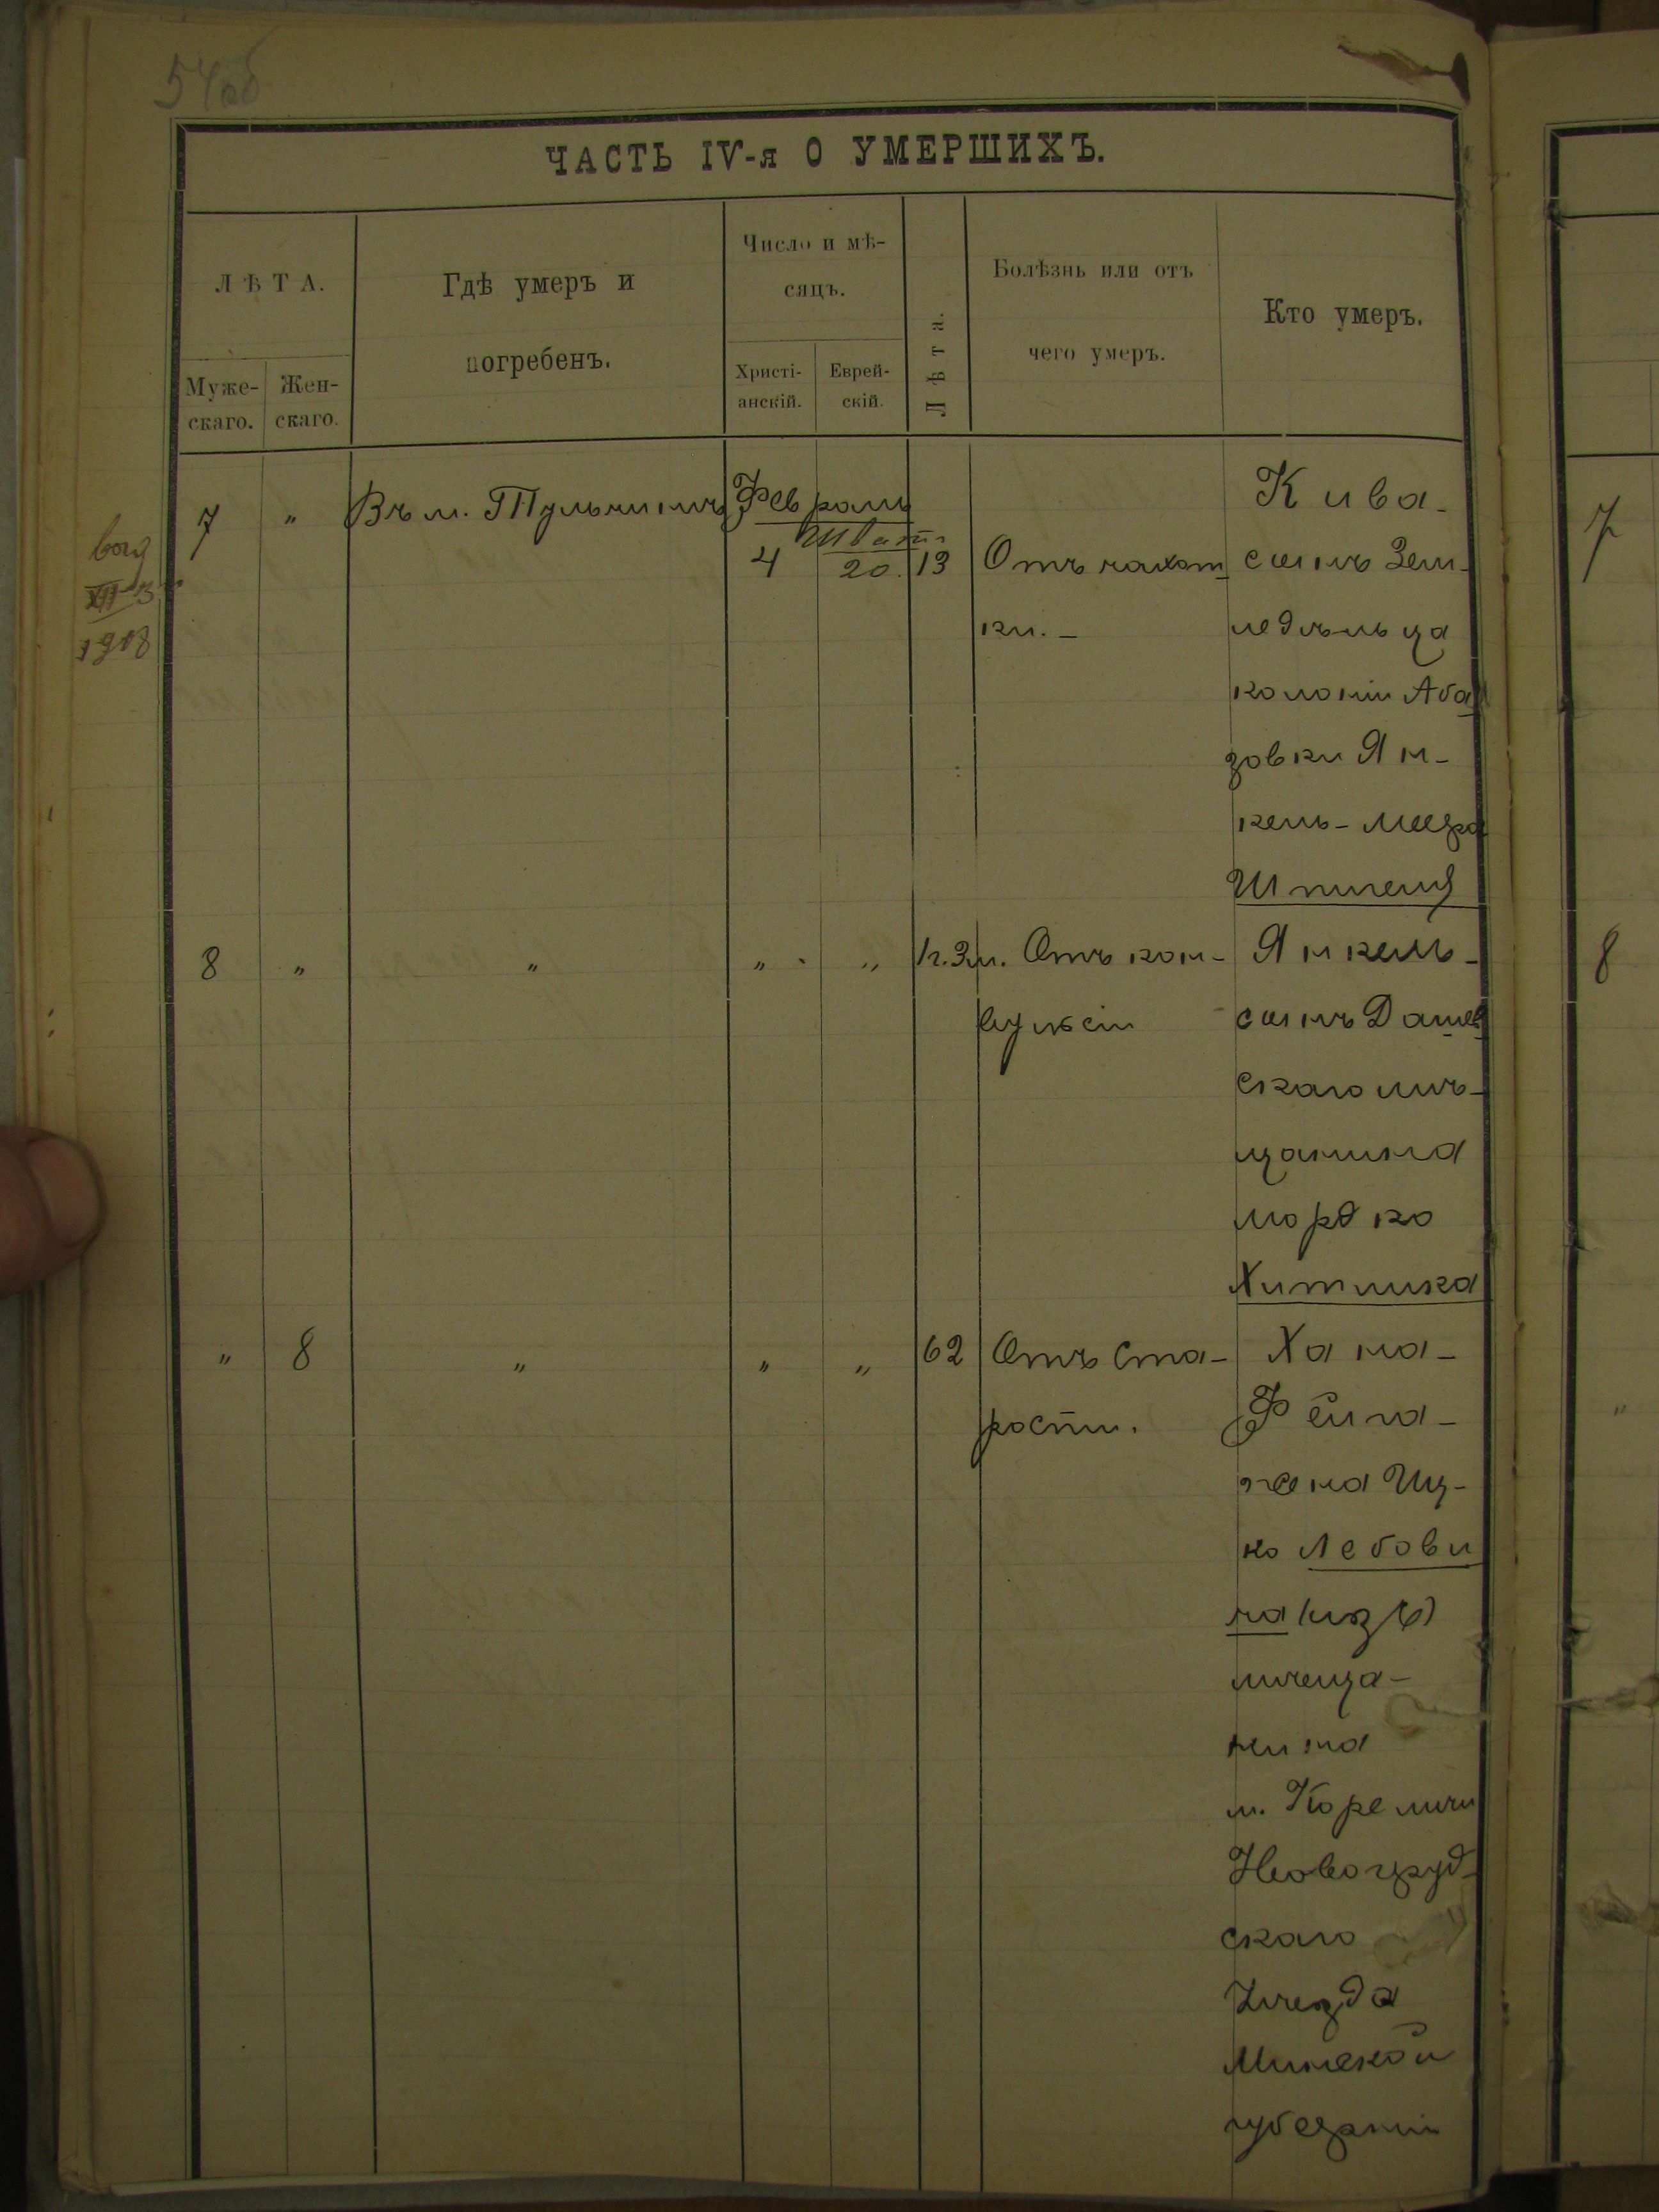 54об
ЧАСТЬ IV-я О УМЕРШИХЪ.
ЛѢТА.
Муже-
скаго.
Жен-
скаго.
Гдѣ умеръ и
погребенъ.
Число и мѣ-
сяцъ.
Христі-
анскій.
Еврей-
скій.
Лѣта.
Болѣзнь или отъ
чего умеръ.
Кто умеръ.
1918
7 " Въ м. Тульчинѣ Февраль
Шватъ
4 20. 13 Отъ чахот-
ки. -
Кива-
сынъ Зем-
ледѣльца
колоніи Аба-
зовки Ян-
кель-Меера
8 " " " " 1г.3м. Отъ кон-
вульсіи
Янкель-
сынъ Дашев
скаго мѣ-
щанина
Мордко
Хитлика
" 8 " " " 62 Отъ ста-
рости.
Хана-
Фейга-
жена Иц-
ко Лебови
мѣща-
нина
м. Кореличи
Новогруд-
скаго
Уѣзда
Минской
губерніи
7
8
"